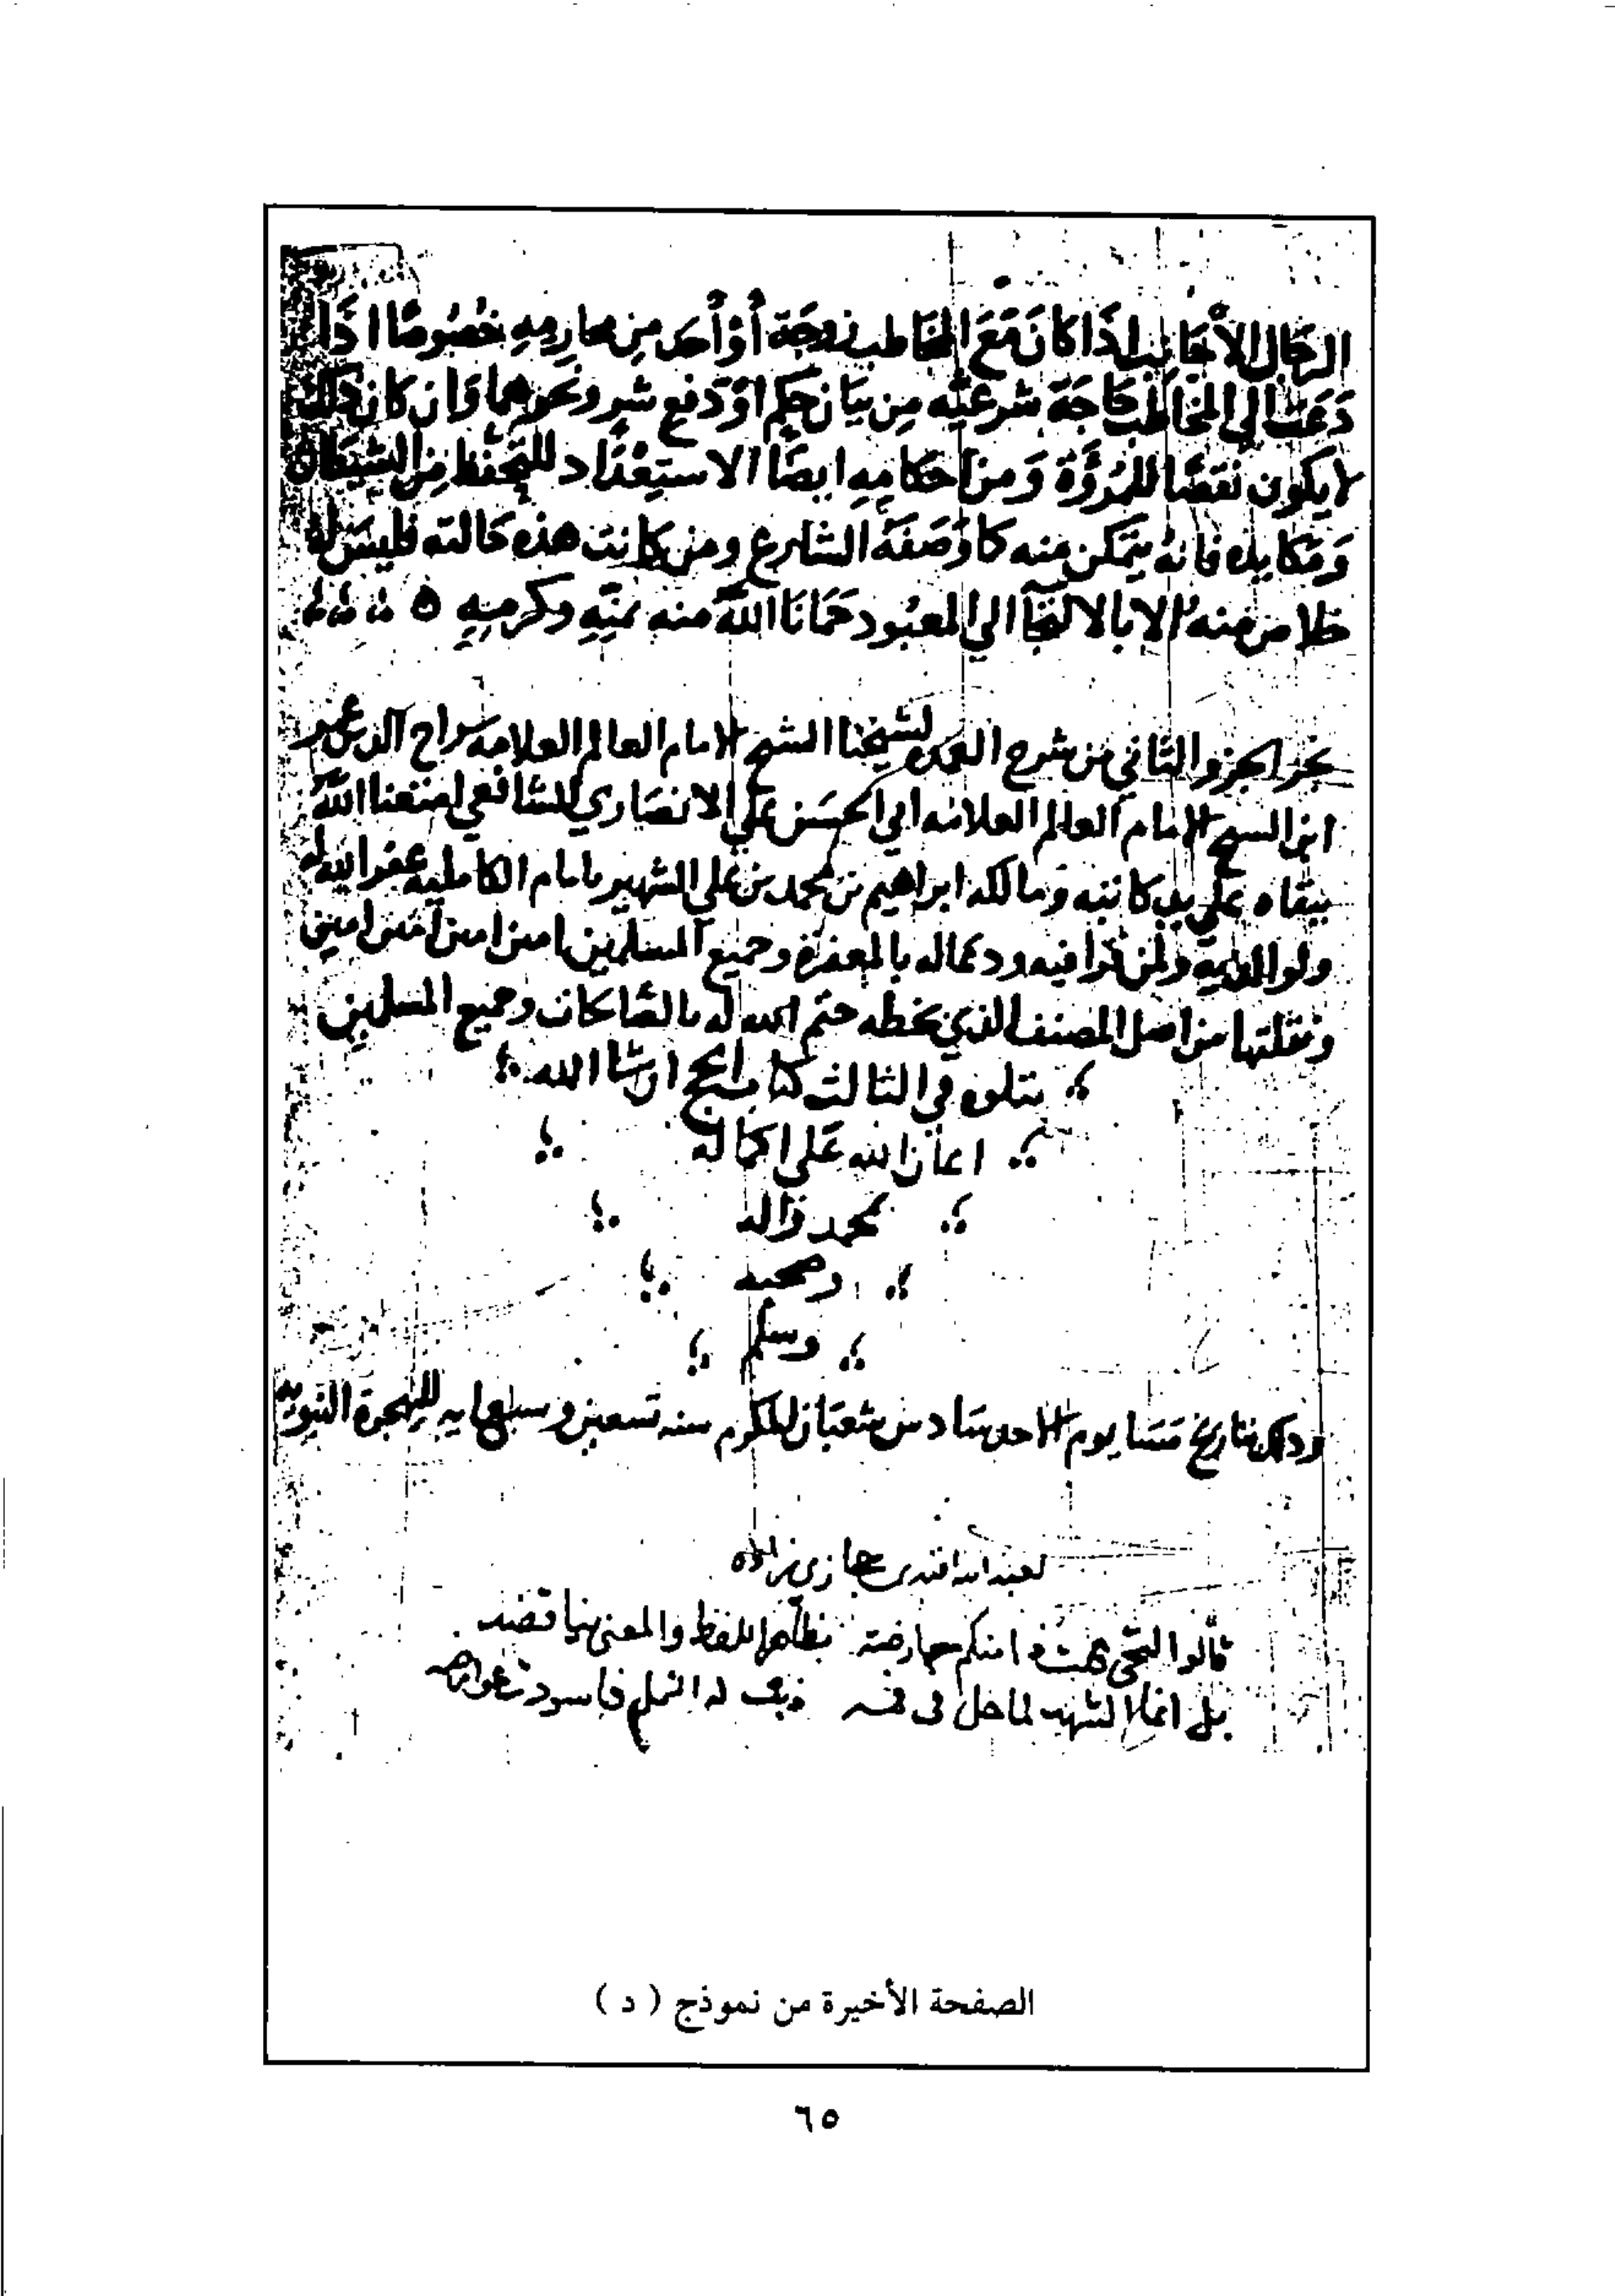 الرجال الاجانب اذا كان مع المخاطب زوجة أو أحد من محارمه خصوصًا اذا
دعت الى المخاطب حاجة شرعيه من بيان حكم او دفع شر ونحوهما وان كان ذلك
لا يكون نقصًا للمروءة ومن احكامه ايضًا الاستعداد للتحفظ من الشيطان
ومكايده فانه يتمكن منه كما وصفه الشارع ومن كانت هذه حالته فليس له
خلاص منه الا بالالتجآ الى المعبود حمانا الله منه بمنه وكرمه
نجز الجزو الثاني من شرح العمده لشيخنا الشيخ الامام العالم العلامه سراج الدين عمر
ابن الشيخ الامام العالم العلامه ابي الحسن علي الانصاري الشافعي امتعنا الله
ببقاه على يد كاتبه ومالكه ابراهيم بن محمد بن علي الشهير بامام الكامليه عفر الله له
ولوالديه ولمن قرا فيه ودعا له بالمغفرة وجميع المسلمين امين امين امين امين
ونقلتها من اصل المصنف الذي بخطه ختم الله له بالصالحات وجميع المسلمين
يتلوه في الثالث كتاب الحج ان شا الله
اعان الله على اكماله
بمحمد واله
وصحبه
وسلم
وذلك بتاريخ مسا يوم الاحد سادس شعبان المكرم سنه تسعين وسبعمايه للهجرة النبويه
لعبد الله افندى حجازي زاده
قالوا التحى منكم معارضة بظاهر اللفظ والمعنى يناقضه
بل انما الشهد لما حل فى فمه دب له النمل فاسودت عوارضه
الصفحة الأخيرة من نموذج ( د )
٦٥